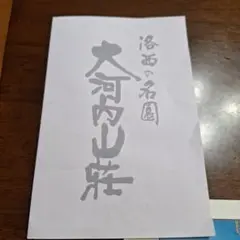 洛西の名園
大河内山荘